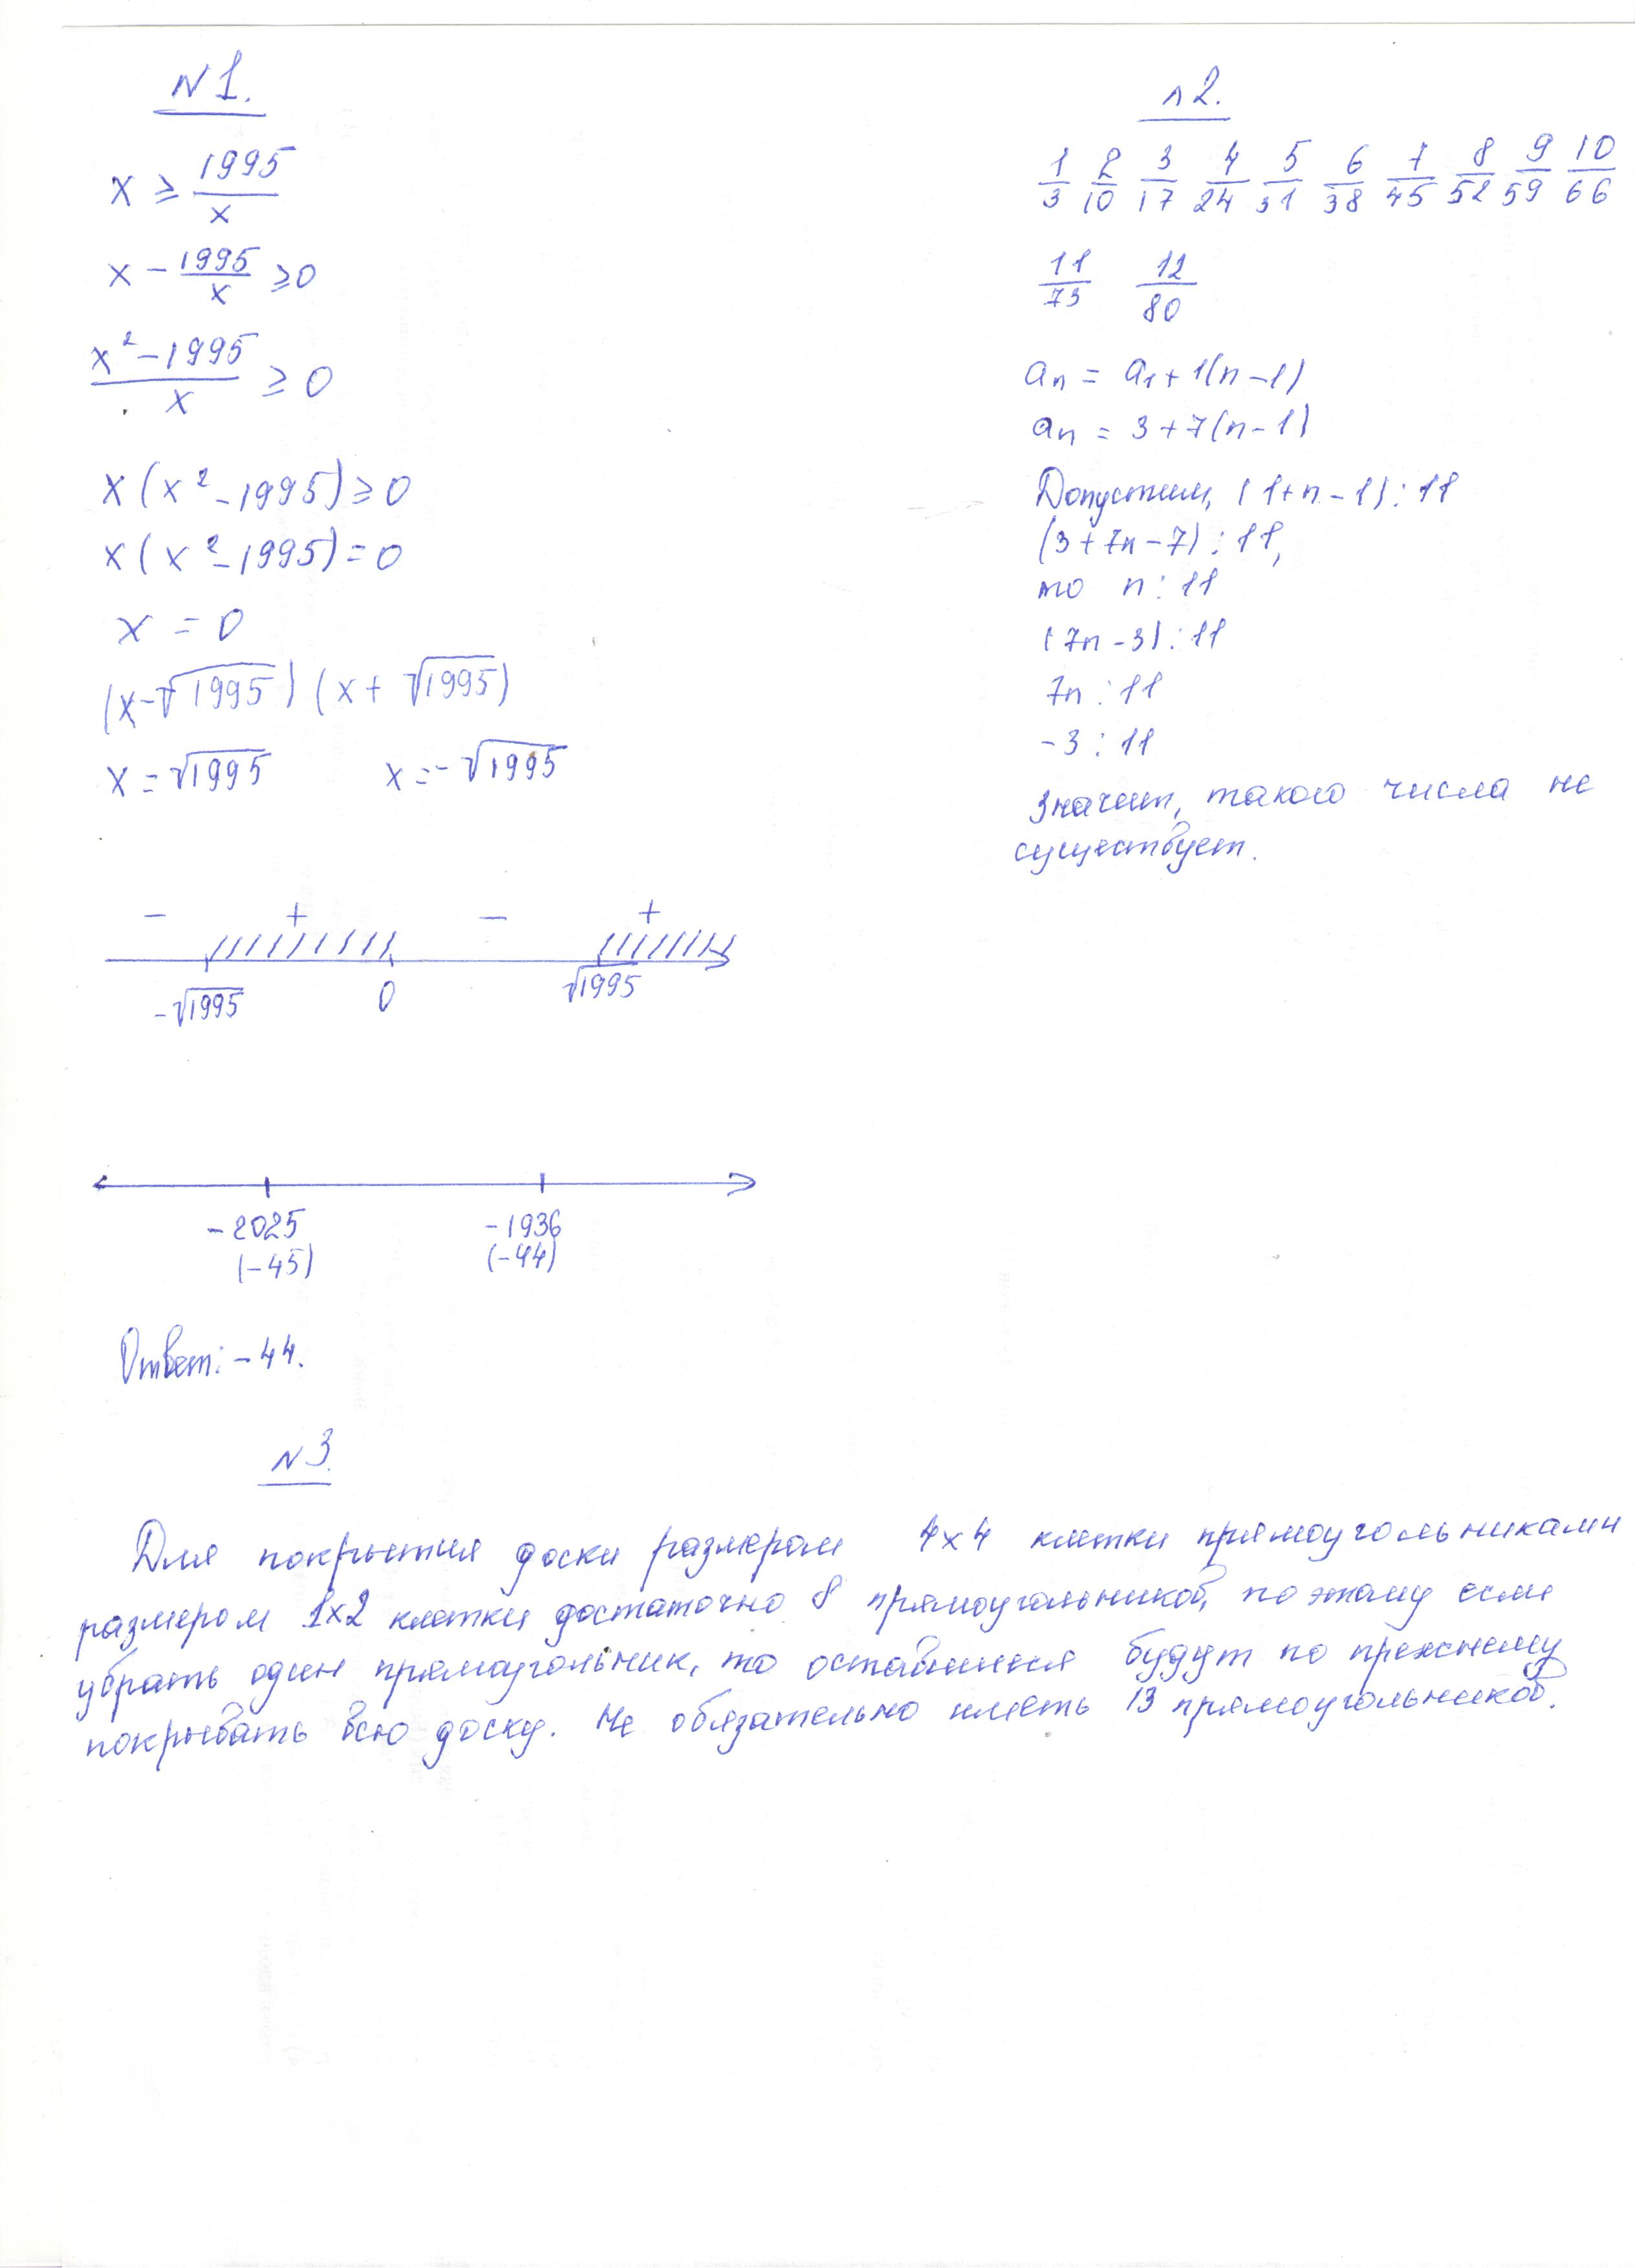 N1.
x ≥ 1995/x
x - 1995/x ≥ 0
(x² - 1995)/x ≥ 0
x(x² - 1995) ≥ 0
x(x² - 1995) = 0
x = 0
(x - √1995)(x + √1995)
x = √1995 x = -√1995
- + - +
-√1995 0 √1995
-2025 -1936
(-45) (-44)
Ответ: -44.
N2.
1/3 2/10 3/17 4/24 5/31 6/38 7/45 8/52 9/59 10/66
11/73 12/80
an = a1 + 1(n-1)
an = 3 + 7(n-1)
Допустим, (1+n-1) ⋮ 11
(3+7n-7) ⋮ 11,
то n ⋮ 11
(7n-3) ⋮ 11
7n ⋮ 11
-3 ⋮ 11
Значит, такого числа не
существует.
N3.
Для покрытия доски размером 4x4 клетки прямоугольниками
размером 1x2 клетки достаточно 8 прямоугольников, по этому если
убрать один прямоугольник, то оставшиеся будут по прежнему
покрывать всю доску. Не обязательно иметь 13 прямоугольников.